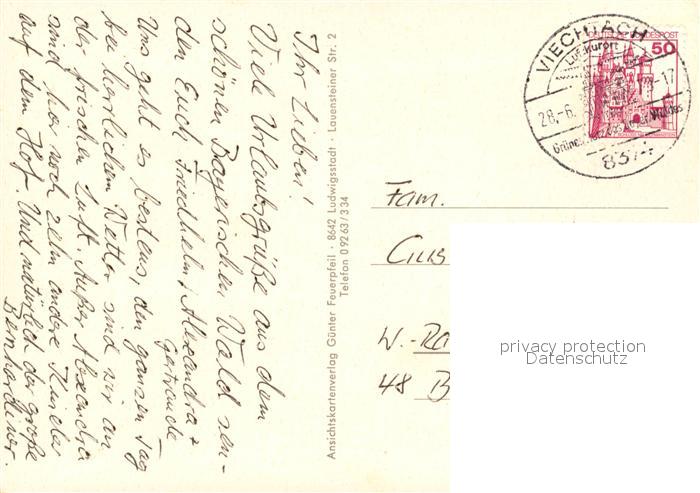 Ihr Lieben!
Viele Urlaubsgrüße aus dem
schönen Bayerischen Wald sen-
den Euch Friedhelm, Alexandra +
Gertrude
Uns geht es bestens, den ganzen Tag
bei herrlichem Wetter sind wir an
der frischen Luft. Außer Alexandra
sind nur noch zehn andere Kinder
auf dem Hof. Und natürlich der große
Bernhardiner.
Ansichtskartenverlag Günter Feuerpfeil · 8642 Ludwigsstadt · Lauensteiner Str. 2
Telefon 09263/334
VIECHTACH
Luftkurort
28.-6.
-17
8374
DEUTSCHE BUNDESPOST
50
Fam.
W.-Ra
48 B
privacy protection
Datenschutz